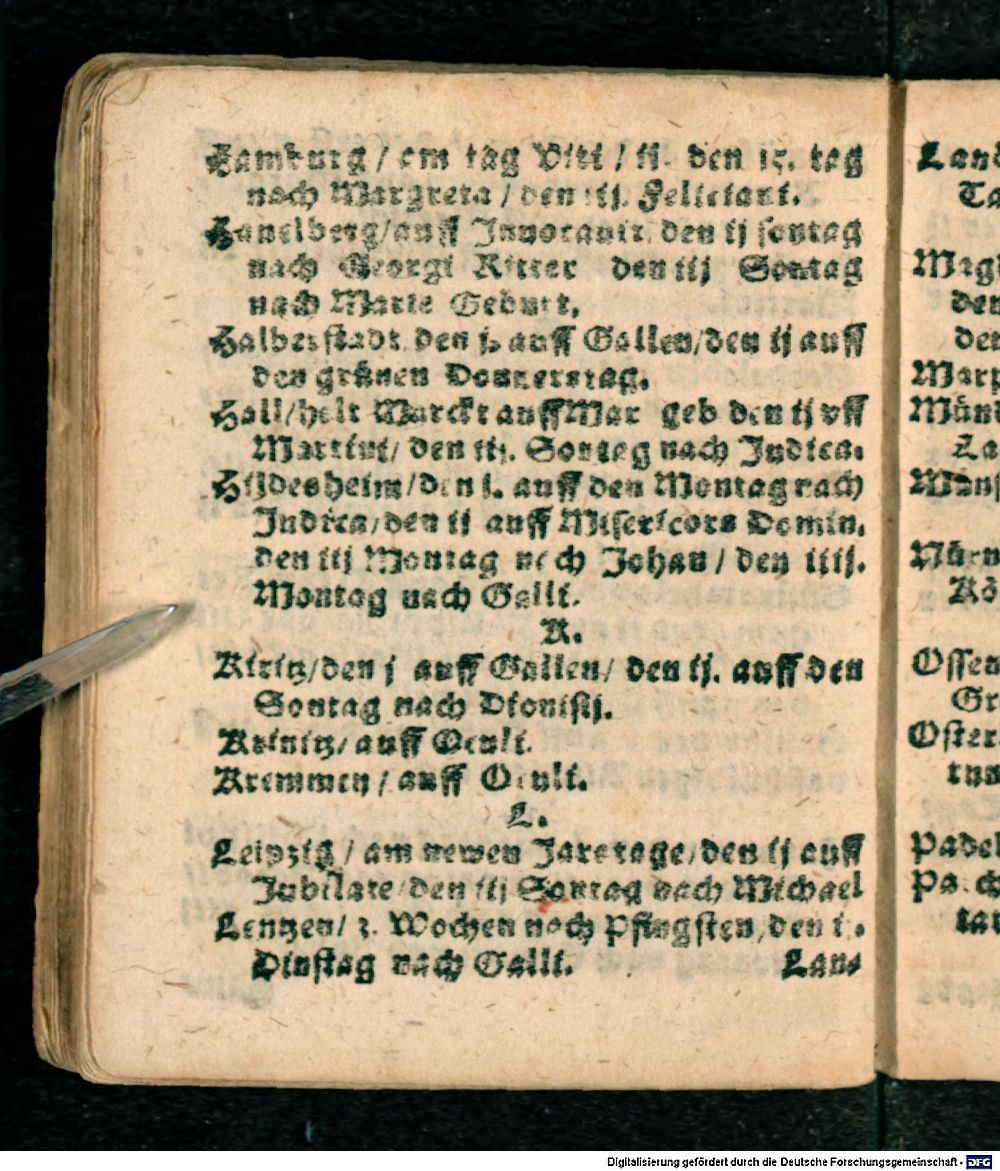 Hamburg / am tag Viti / ij. den 15. tag
nach Margreta / den iij. Feliciani.
Hauelberg / auff Inuocauit, den ij sontag
nach Georgi Ritter den iij Sontag
nach Marie Geburt.
Halberstadt, den j. auff Gallen / den ij auff
den grünen Donnerstag.
Hall / helt Marckt auff Mar geb den ij vff
Martini / den iij. Sontag nach Judica.
Hildesheim / den j. auff den Montag nach
Judica / den ij auff Misericors Domin.
den iij Montag nach Johan / den iiij.
Montag nach Galli.
K.
Kiritz / den j auff Gallen / den ij. auff den
Sontag nach Dionisij.
auff Oculi.
Kremmen / auff Oculi.
L.
Leipzig / am newen Jarstage / den ij auff
Jubilate / den iij Sontag nach Michael
Lentzen / 3. Wochen nach Pfingsten, den
Dinstag nach Galli.
Lans
Land
Ta
Magd
den
den
Marp
Mün
La
Müns
Nürn
Kö
Ossen
Gr
Oster
Padel
tar
Digitalisierung gefördert durch die Deutsche Forschungsgemeinschaft - DFG